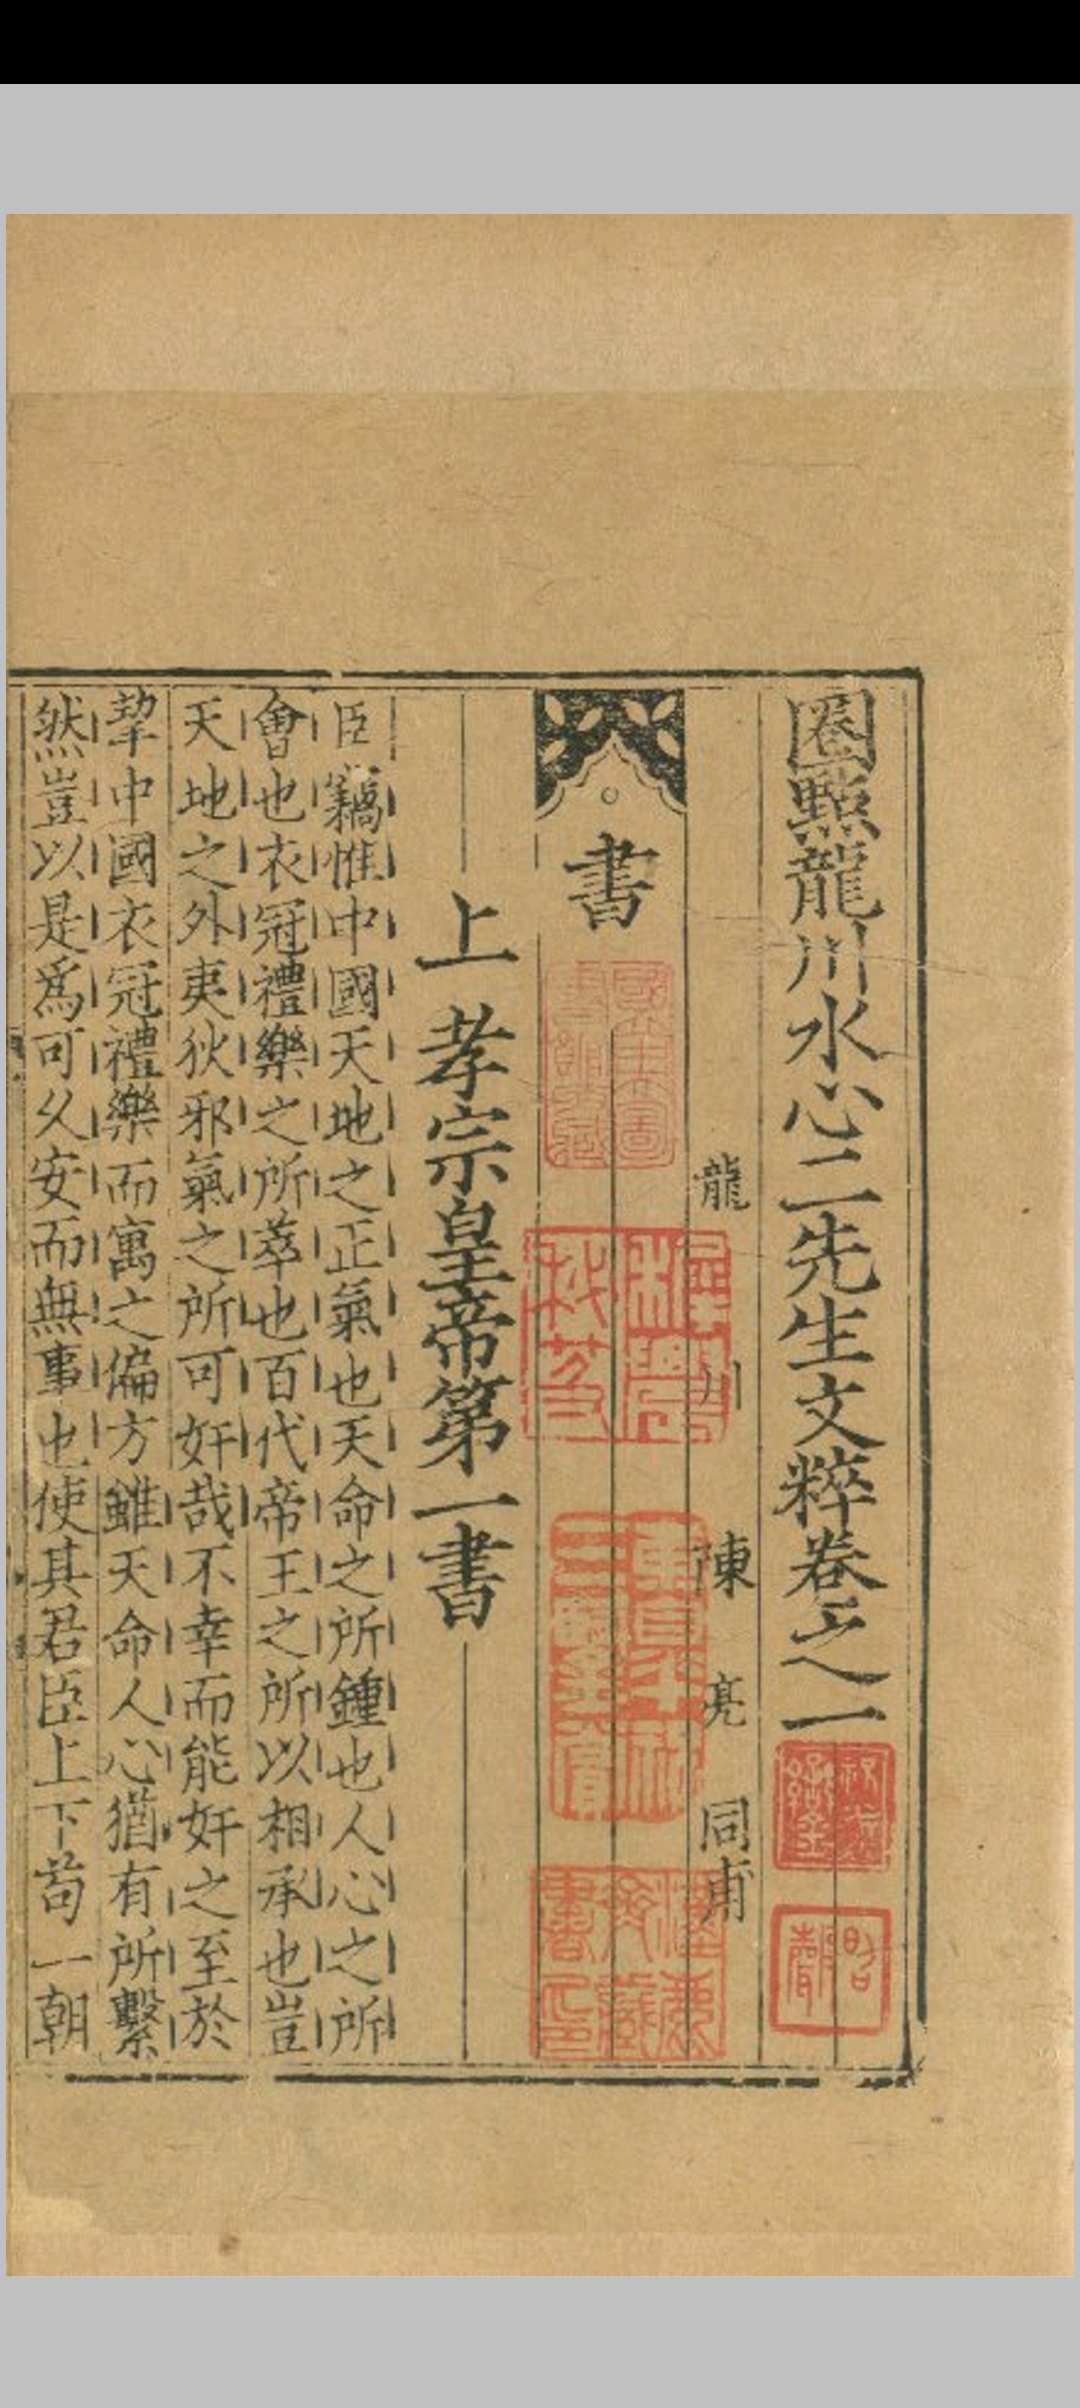 圈點龍川水心二先生文粹卷之一
龍川陳亮同甫
書
上孝宗皇帝第一書
臣竊惟中國天地之正氣也天命之所鍾也人心之所
會也衣冠禮樂之所萃也百代帝王之所以相承也豈
天地之外夷狄邪氣之所可奸哉不幸而能奸之至於
挈中國衣冠禮樂而寓之偏方雖天命人心猶有所繫
然豈以是爲可久安而無事也使其君臣上下苟一朝